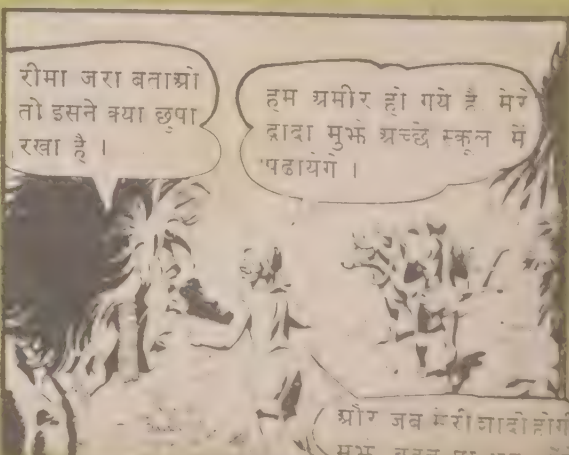 रीमा जरा बताओ
तो इसने क्या छुपा
रखा है ।
हम अमीर हो गये है मेरे
दादा मुझे अच्छे स्कूल में
पढायेगे ।
और जब मेरी शादी होगी
मुझे